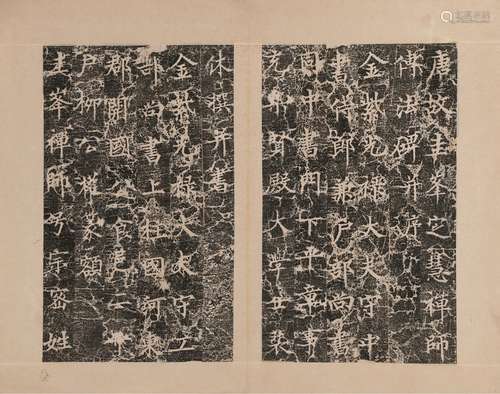 唐故圭峯定慧禪師
傳法碑并序
金紫光祿大夫守中
書侍郎兼戶部尚書
同中書門下平章事
充集賢殿大學士裴
休撰并書
金紫光祿大夫守工
部尚書上柱國河東
郡開國公食邑二千
戶柳公權篆額
圭峯禪師号宗密姓